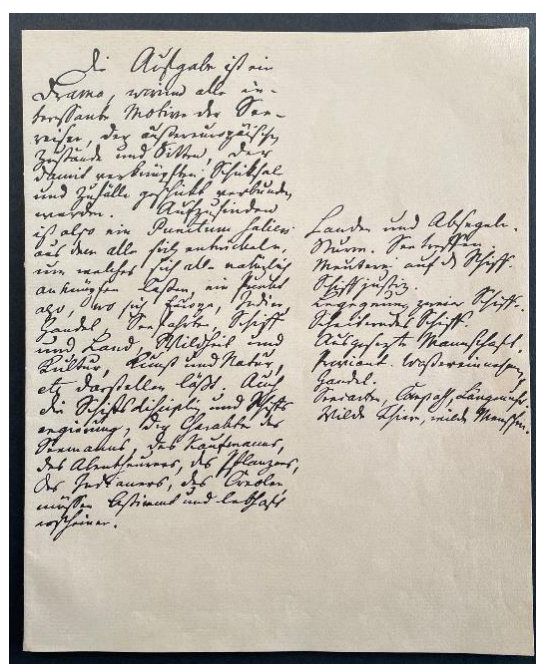 Die Aufgabe ist ein
Drama, worinn alle in-
teressante Motive der See-
reisen, der außereuropäischen
Zustände und Sitten, der
damit verknüpften Schicksale
und Zufälle geschickt verbunden
werden. Aufzufinden
ist also ein Punctum saliens
aus dem alle sich entwickeln,
um welches sich alle natürlich
anknüpfen lassen, ein Punkt
also, wo sich Europa, Indien,
Handel, Seefahrten, Schiff
und Land, Wildheit und
Kultur, Kunst und Natur,
etc darstellen läßt. Auch
die Schiffsdisciplin und Schiffs
regierung, der Charakter des
Seemanns, des Kaufmanns,
des Abentheurers, des Pflanzers,
des Indianers, des Creolen
müssen bestimmt und lebhaft
erscheinen.
Landen und Absegeln.
Sturm. Seetreffen.
Meuterei auf d Schiff.
Schiffsjustiz.
Begegnung zweier Schiffe.
Scheiterndes Schiff.
Ausgesetzte Mannschaft.
Proviant. Wassereinnahme.
Handel.
Seecarten, Compaß, Längenuhr
Wilde Thiere, wilde Menschen.